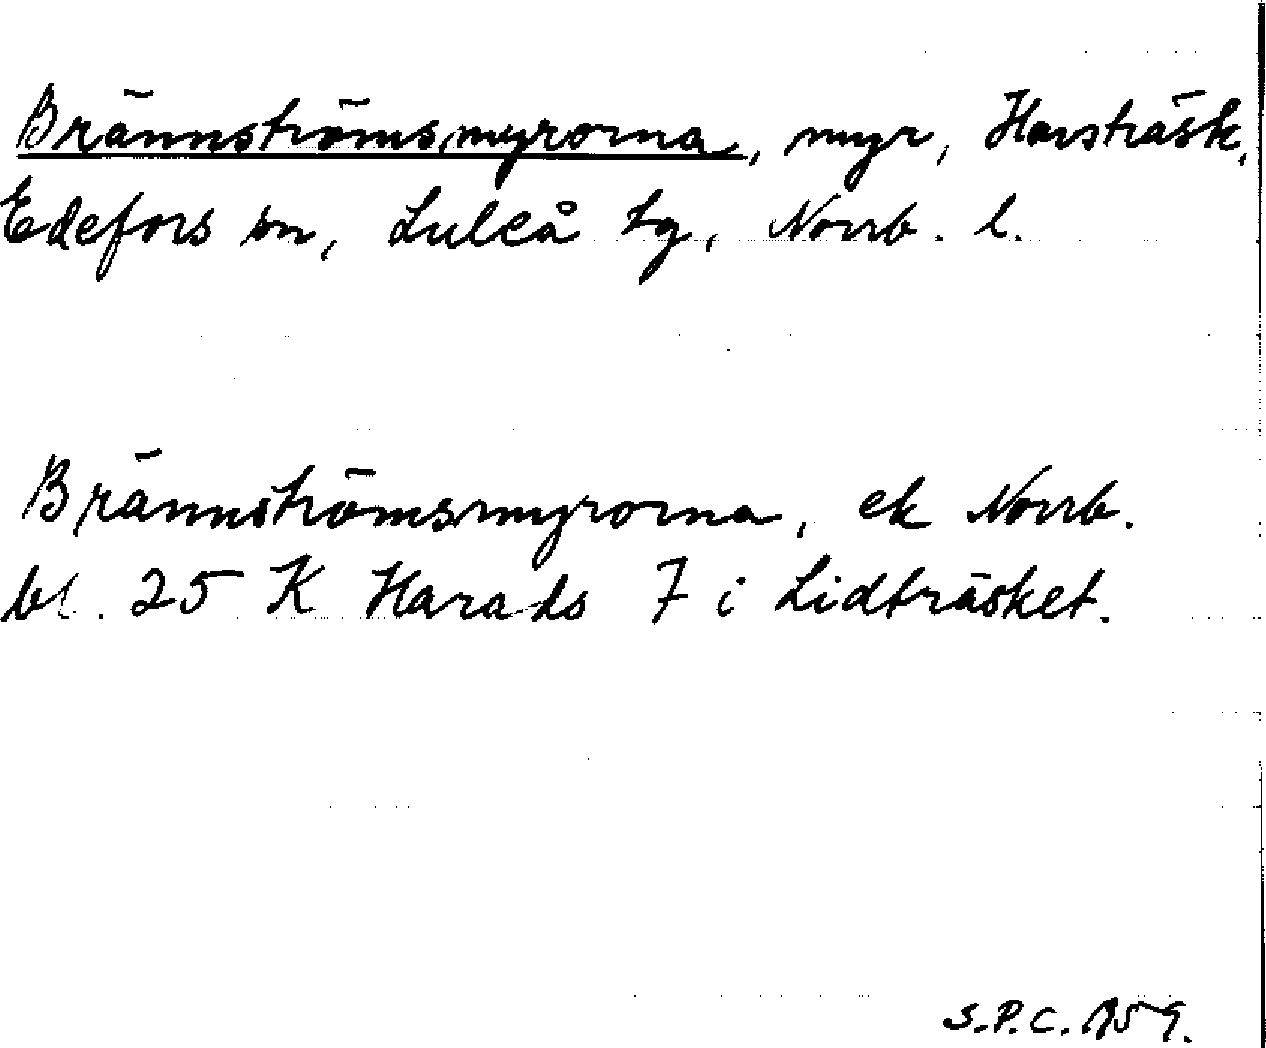 Brännströmsmyrorna, myr, Harsträsk,
Edefors sn, Luleå tg, Norrb. l.
Brännströmsmyrorna, ek Norrb.
bl. 25 K Harads 7 i Lidträsket.
S.P.C. 1959.